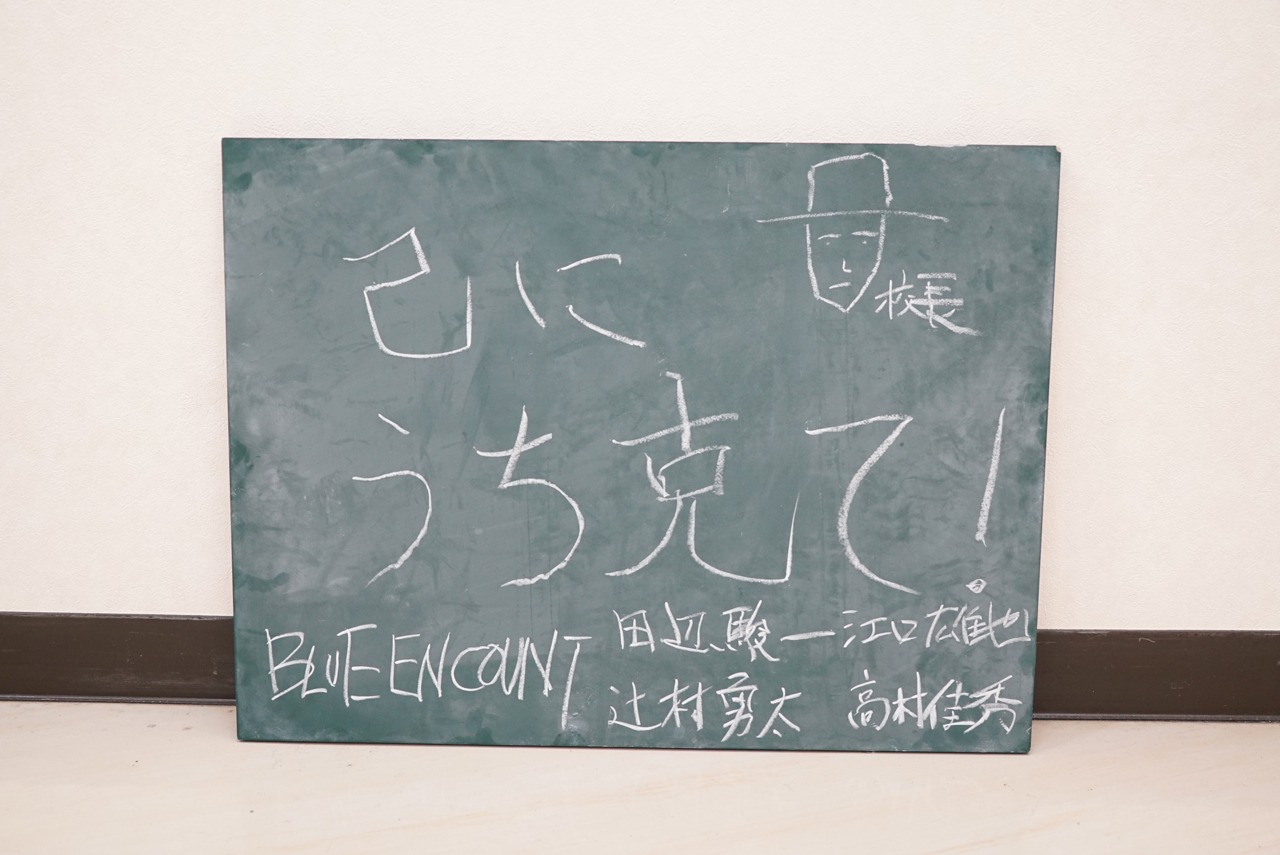 己に
校長
うち克て!
BLUE ENCOUNT
田辺駿一 江口雄也
辻村勇太 高村佳秀